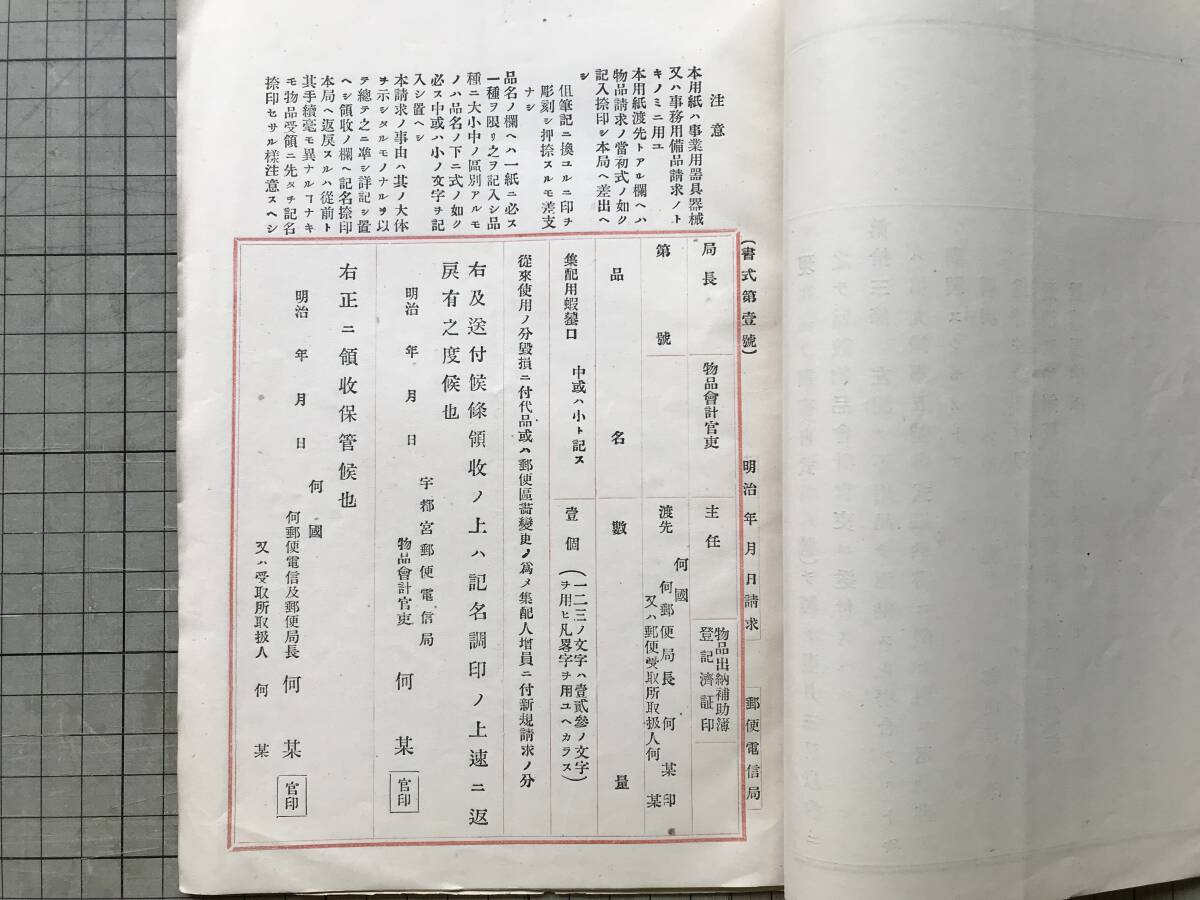 注意
本用紙ハ事業用器具器械
又ハ事務用備品請求ノト
キノミニ用ユ
本用紙渡先トアル欄ヘハ
物品請求ノ當初式ノ如ク
記入捺印シ本局ヘ差出ヘ
シ
但筆記ニ換ユルニ印チ
彫刻シ押捺スルモ差支
ナシ
品名ノ欄ヘハ一紙ニ必ス
一種ヲ限リ之ヲ記入シ品
種ニ大小中ノ區別アルモ
ノハ品名ノ下ニ式ノ如ク
必ス中或ハ小ノ文字ヲ記
入シ置ヘシ
本請求ノ事由ハ其ノ大体
ヲ示シタルモノナルヲ以
テ總テ之ニ凖シ詳記シ置
ヘシ領收ノ欄ヘ記名捺印
本局ヘ返戻スルハ從前ト
其手續毫モ異ナルヿナキ
モ物品受領ニ先タチ記名
捺印セサル樣注意スヘシ
(書式第壹號)
明治年月日請求
郵便電信局
局長
物品會計官吏
主任
物品出納補助簿
登記濟証印
第號
渡先
何國
何郵便局長何某印
又ハ郵便受取所取扱人何某
品名
數量
集配用蝦蟇口
中或ハ小ト記ス
壹個
(一二三ノ文字ハ壹貳參ノ文字
ヲ用ヒ凡畧字ヲ用ユヘカラス)
從來使用ノ分毀損ニ付代品或ハ郵便區畫變更ノ爲メ集配人增員ニ付新規請求ノ分
右及送付候條領收ノ上ハ記名調印ノ上速ニ返
戻有之度候也
明治年月日
宇都宮郵便電信局
物品會計官吏
何某
官印
右正ニ領收保管候也
明治年月日
何國
何郵便電信及郵便局長
何某
官印
又ハ受取所取扱人何某